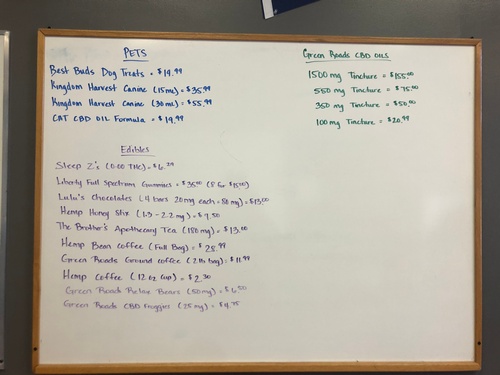 PETS
Best Buds Dog Treats = $19.99
Kingdom Harvest Canine (15mL) = $35.99
Kingdom Harvest Canine (30mL) = $55.99
CAT CBD OIL Formula = $19.99
Edibles
Sleep Z's (0.00 THC) = $6.
Liberty Full Spectrum Gummies = $35.00 (8 for $15.00)
Lulu's Chocolates (4 bars 20mg each = 80mg) = $13.00
Hemp Honey Stix (1.3 - 2.2mg) = $7.50
The Brother's Apothecary Tea (180mg) = $13.00
Hemp Bean Coffee (Full Bag) = $28.99
Green Roads Ground Coffee (2 lb bag): $11.99
Hemp Coffee (12 oz cup) = $2.30
Green Roads Relax Bears (50mg) = $6.50
Green Roads CBD Froggies (25mg) = $4.75
Green Roads CBD OILS
1500mg Tincture = $155.00
550mg Tincture = $75.00
350mg Tincture = $50.00
100mg Tincture = $20.99